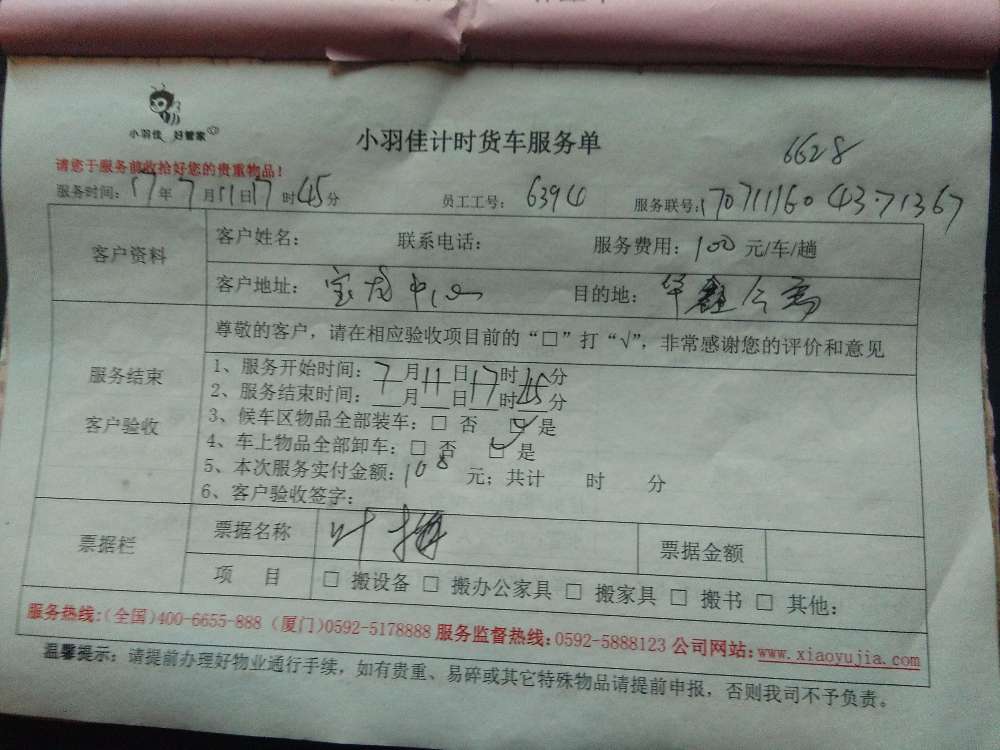 小羽佳 好管家
小羽佳计时货车服务单
6628
请您于服务前收拾好您的贵重物品！
服务时间：17年7月11日17时45分 员工工号：6394 服务联号：
客户资料 客户姓名： 联系电话： 服务费用：100元/车/趟
客户地址：宝龙中心 目的地：华鑫
服务结束 客户验收 尊敬的客户，请在相应验收项目前的“□”打“√”，非常感谢您的评价和意见
1、服务开始时间：7月11日17时45分
2、服务结束时间：___月___日___时___分
3、候车区物品全部装车：□ 否 ☑ 是
4、车上物品全部卸车：□ 否 ☑ 是
5、本次服务实付金额：100 元；共计 时 分
6、客户验收签字：
票据栏 票据名称 票据金额
项 目 □ 搬设备 □ 搬办公家具 □ 搬家具 □ 搬书 □ 其他：
服务热线：(全国)400-6655-888 (厦门)0592-5178888 服务监督热线：0592-5888123 公司网站：www.xiaoyujia.com
温馨提示：请提前办理好物业通行手续，如有贵重、易碎或其它特殊物品请提前申报，否则我司不予负责。